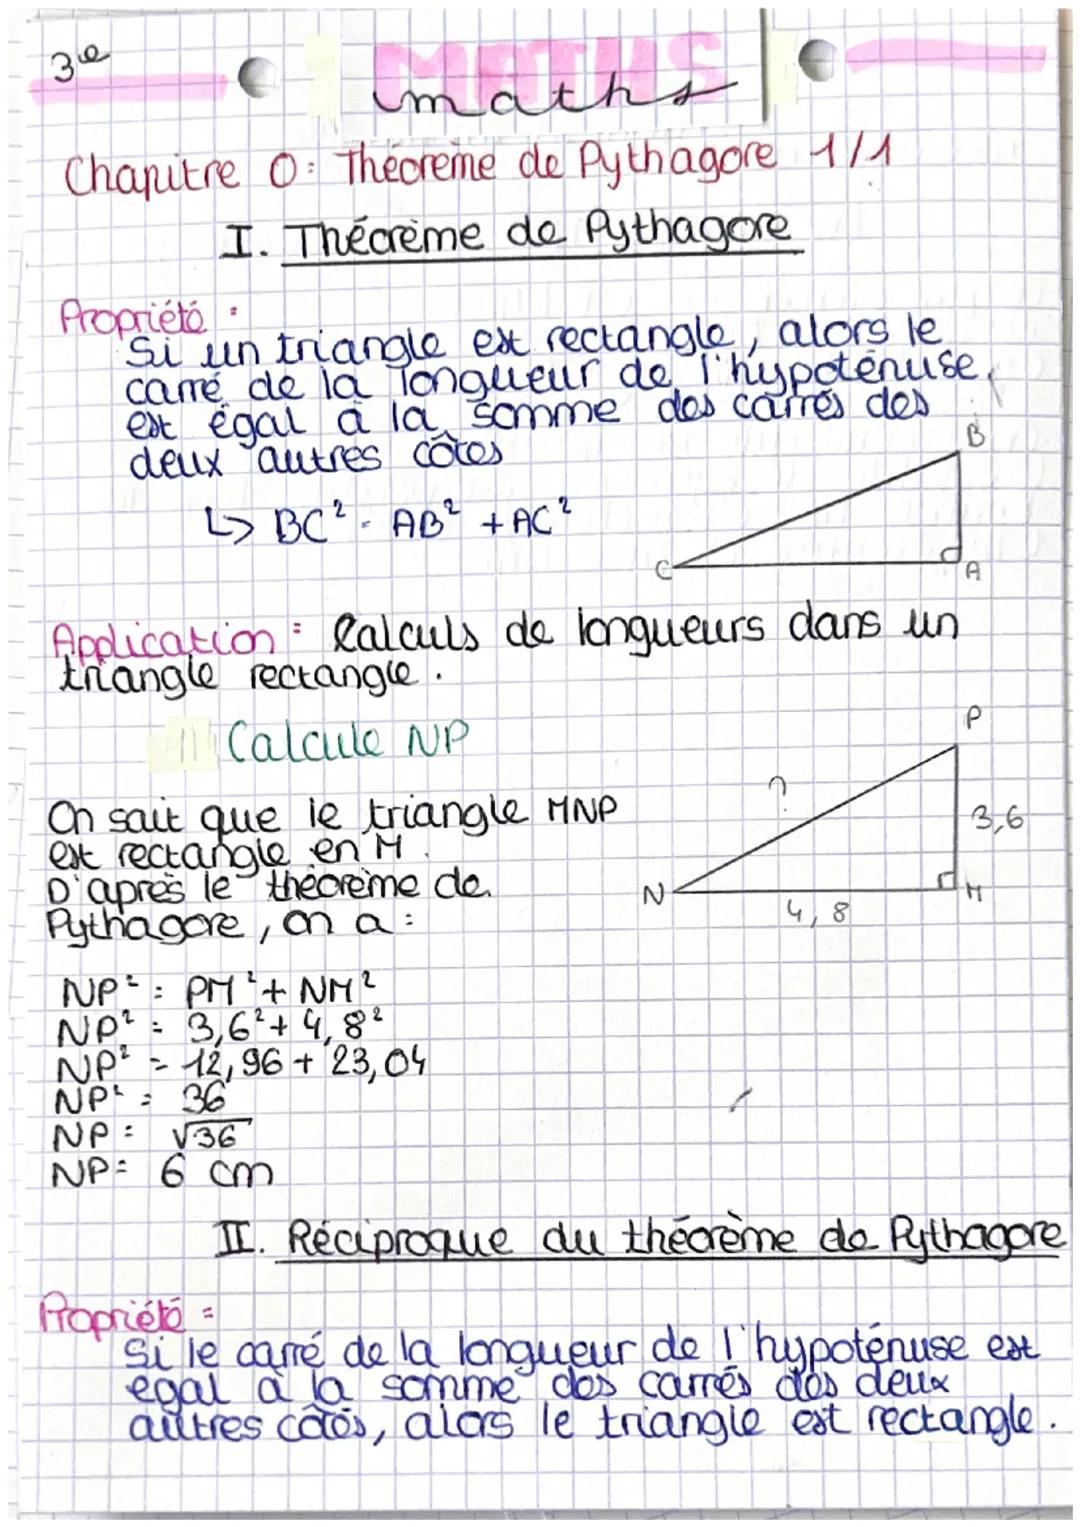 3e
MATHS
maths
Chapitre 0: Théorème de Pythagore 1/1
I. Théorème de Pythagore
Propriété :
Si un triangle est rectangle, alors le
carré de la longueur de l'hypoténuse,
est égal à la somme des carrés des
deux autres côtés
B
↳ BC² = AB² + AC²
C
A
Application : Calculs de longueurs dans un
triangle rectangle.
1) Calcule NP
P
?
3,6
N
4,8
M
On sait que le triangle MNP
est rectangle en M.
D'après le théorème de
Pythagore, on a :
NP² = PM² + NM²
NP² = 3,6² + 4,8²
NP² = 12,96 + 23,04
NP² = 36
NP = √36
NP = 6 cm
II. Réciproque du théorème de Pythagore
Propriété =
Si le carré de la longueur de l'hypoténuse est
égal à la somme des carrés des deux
autres côtés, alors le triangle est rectangle.